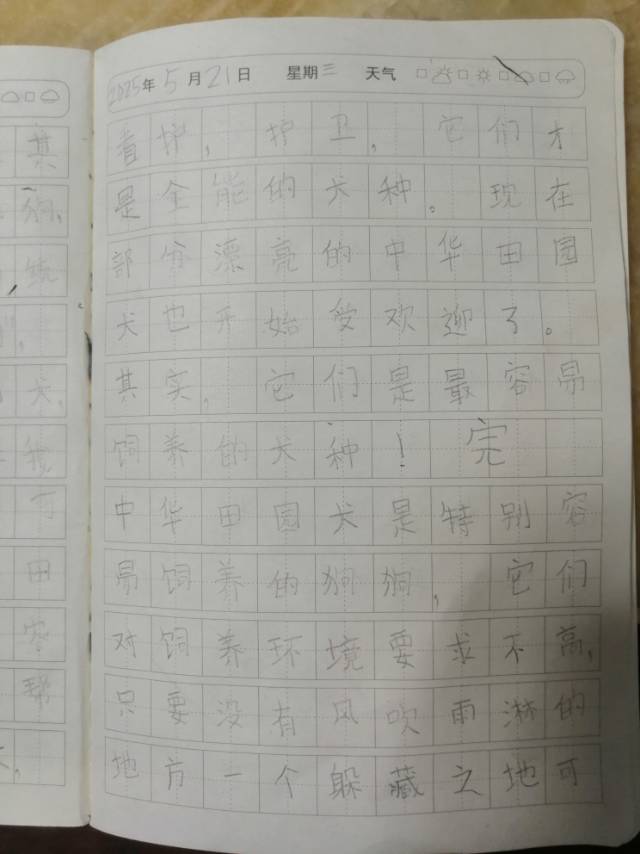 其
狗,
统
,
犬,
我
可
田
容
帮
,
2025年5月21日 星期三 天气
看护,护卫,它们才
是全能的犬种。现在
部分漂亮的中华田园
犬也开始受欢迎了。
其实,它们是最容易
饲养的犬种!完
中华田园犬是特别容
易饲养的狗狗,它们
对饲养环境要求不高,
只要没有风吹雨淋的
地方一个躲藏之地可